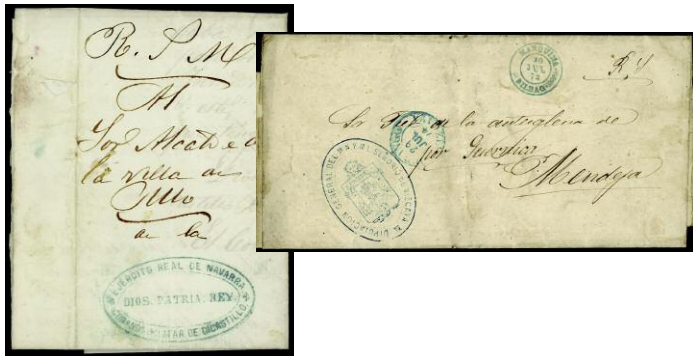 R. S M
Al
Sor Alcalde
la villa de
Allo
en la
EJÉRCITO REAL DE NAVARRA
DIOS. PATRIA. REY.
MILITAR DE DICASTILLO
MARQUINA
30
JUL
74
BILBAO
R. S
Sr Fiel de la anteiglesia de
por Guernica
Mendeja
29
JUL
DIPUTACION GENERAL DEL M.N.Y M.L. SEÑORIO DE VIZCAYA